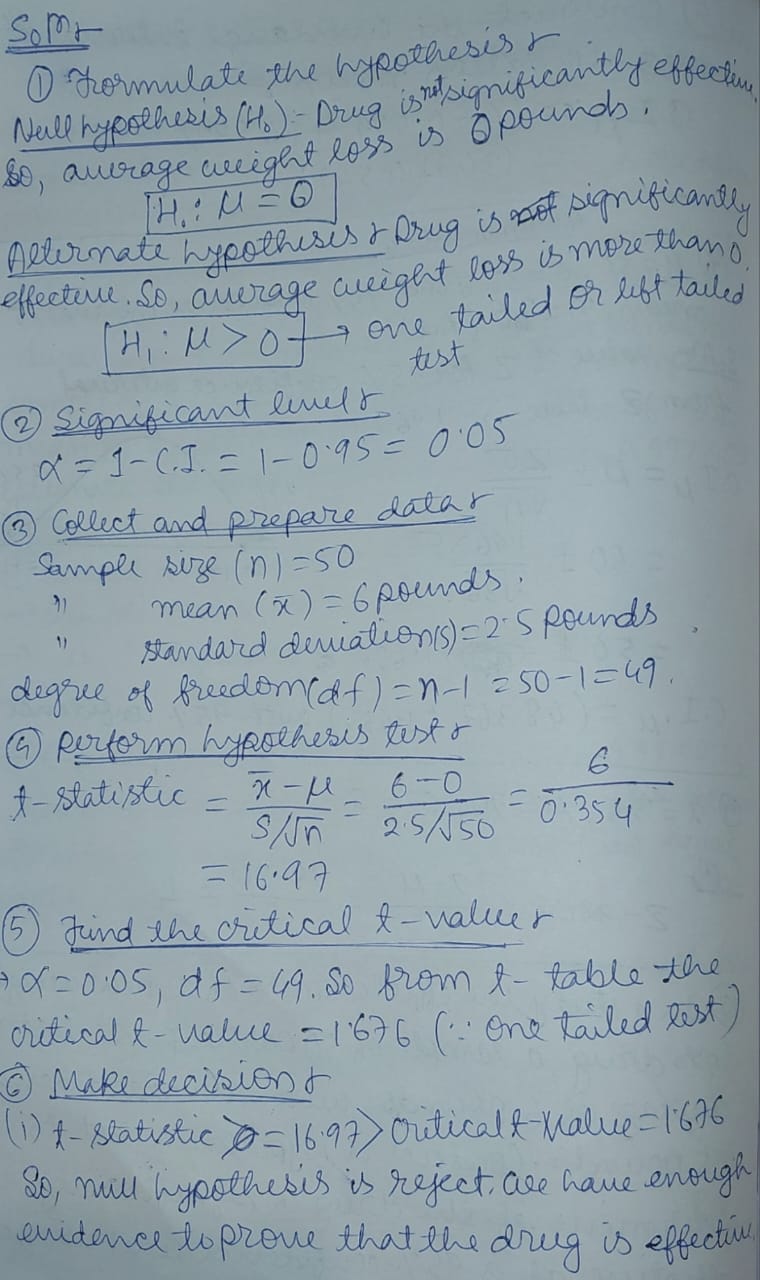 Soln:-
① Formulate the hypothesis:-
Null hypothesis (H₀):- Drug is not significantly effective.
So, average weight loss is 0 pounds.
H₀: μ = 0
Alternate hypothesis:- Drug is significantly
effective. So, average weight loss is more than 0.
H₁: μ > 0 → one tailed or left tailed
test
② Significant level:-
α = 1 - C.I. = 1 - 0.95 = 0.05
③ Collect and prepare data:-
Sample size (n) = 50
" mean (x̄) = 6 pounds.
" standard deviation(s) = 2.5 pounds.
degree of freedom(df) = n-1 = 50-1 = 49.
④ Perform hypothesis test:-
t-statistic = (x̄ - μ)/(S/√n) = (6-0)/(2.5/√50) = 6/0.354
= 16.97
⑤ Find the critical t-value:-
→ α = 0.05, df = 49. So from t-table the
critical t-value = 1.676 (∵ one tailed test)
⑥ Make decision:-
(i) t-statistic = 16.97 > Critical t-value = 1.676
So, null hypothesis is reject. We have enough
evidence to prove that the drug is effective.